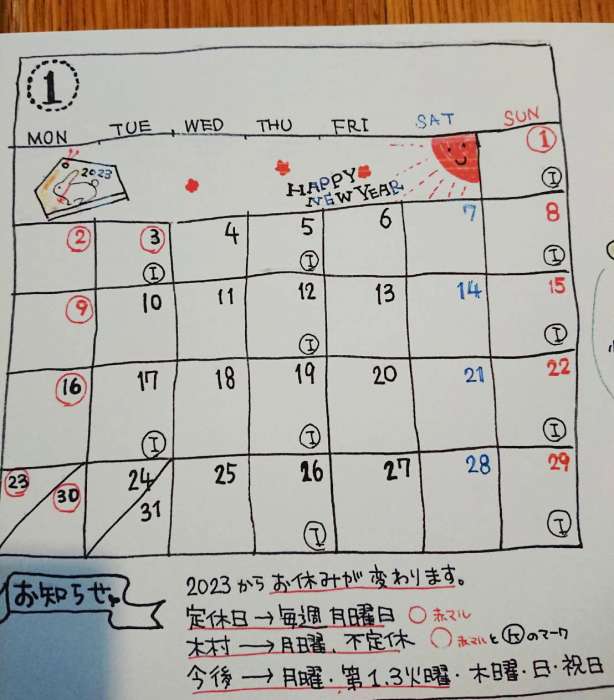 1
MON TUE WED THU FRI SAT SUN
2023
HAPPY
NEW YEAR
1
I
2 3 4 5 6 7 8
I I I
9 10 11 12 13 14 15
I I
16 17 18 19 20 21 22
I I I
23 30 24 31 25 26 27 28 29
I I
お知らせ
2023からお休みが変わります。
定休日→毎週月曜日 ○赤マル
木村→月曜、不定休 ○赤マルと のマーク
今後→月曜・第1.3火曜・木曜・日・祝日